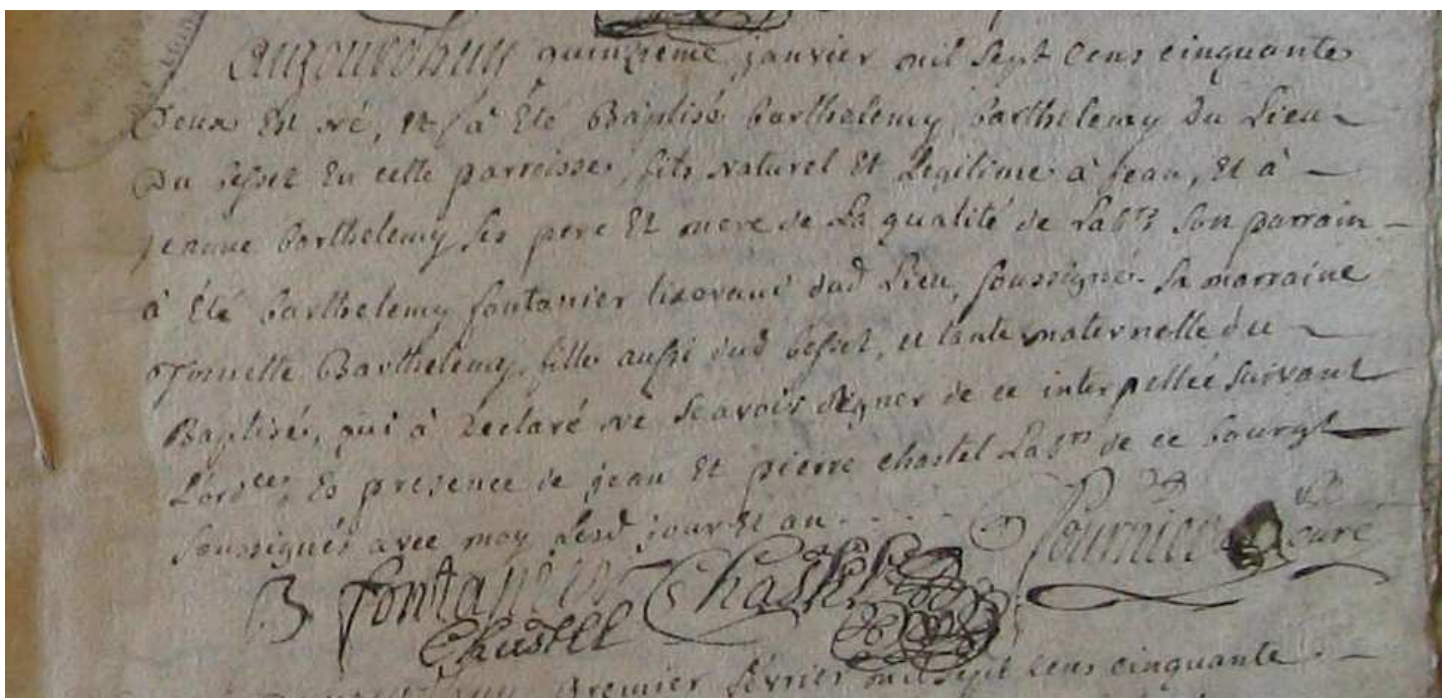 aujourdhuy quinzieme janvier mil sept cens cinquante
Deux Est né, Et à Eté Baptisé barthelemy barthelemy du Lieu
Du besset En cette parroisse, fils naturel Et Legitime à jean, Et à
jeanne barthelemy ses pere Et mere de La qualité de Labrs son parrain
à Eté barthelemy fontanier dud Lieu, soussigné. Sa marraine
Tonnette Barthelemy, fille aussi dud besset, et tante maternelle du
Baptisé, qui à Declaré ne scavoir signer de ce interpellée suivant
L'ordce, Es presence de jean Et pierre chastel Labrs de ce bourg
soussignés avec moy Lesd jour Et an
fournier curé
B fontanier Chastel
Chastel
premier février mil sept cens cinquante